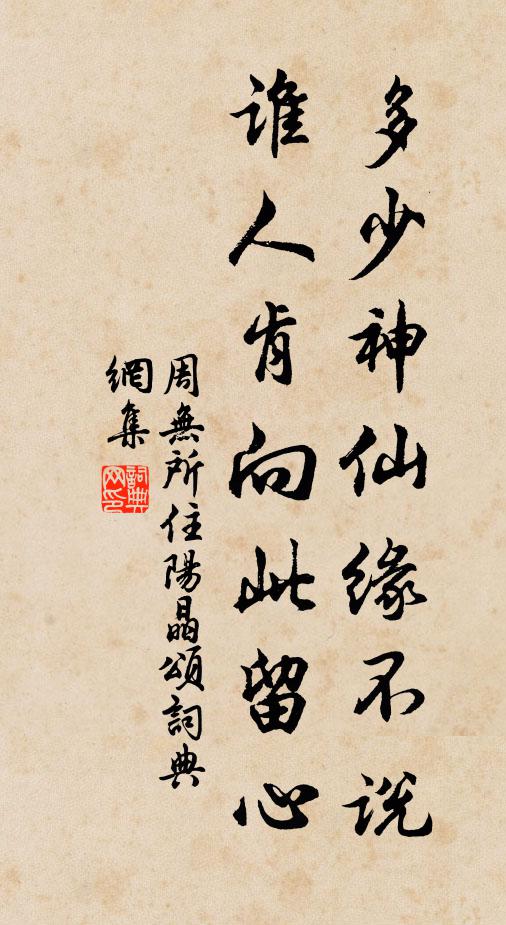 多少神仙缘不说
谁人肯向此留心
周無所住陽晶頌詞典
網集
詞典
网印